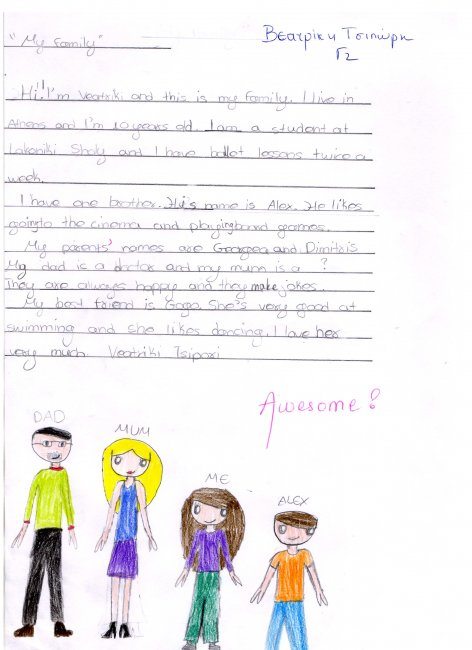 "My family"
Βεατρίκη Τσιπώρη
Γ2
Hi! I'm Veatriki and this is my family. I live in
Athens and I'm 10 years old. I am a student at
and I have ballet lessons twice a
week.
I have one brother. His name is Alex. He likes
going to the cinema and playing board games.
My parents' names are Georgea and Dimitris
My dad is a doctor and my mum is a ?
They are always happy and they make jokes.
My best friend is Gogo. She's very good at
swimming and she likes dancing. I love her
very much. Veatriki Tsipori
Awesome!
DAD
MUM
ME
ALEX